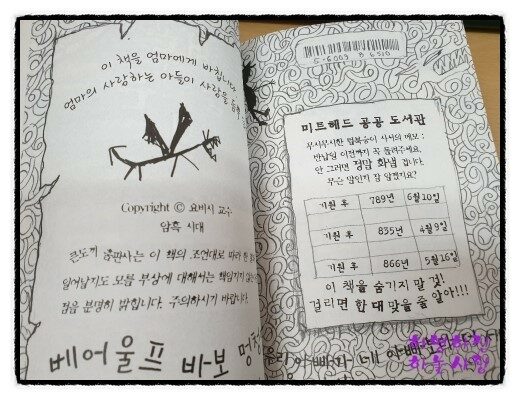 이 책을 엄마에게 바칩니다
엄마의 사랑하는 아들이 사랑을 듬뿍
Copyright ⓒ 요비시 교수
암흑 시대
큰도끼 출판사는 이 책의 조언대로 따라 한
일어날지도 모를 부상에 대해서는 책임지지
점을 분명히 밝힙니다. 주의하시기 바랍니다.
베어울프 바보 멍청
미트헤드 공공 도서관
무시무시한 털북숭이 사서의 메모 :
반납일 이전까지 꼭 돌려주세요.
안 그러면 정말 화냄 겁니다.
무슨 말인지 잘 알겠지요?
기원 후 789년 6월 10일
기원 후 835년 4월 9일
기원 후 866년 5월 16일
이 책을 숨기지 말 것!
걸리면 한 대 맞을 줄 알아!!!